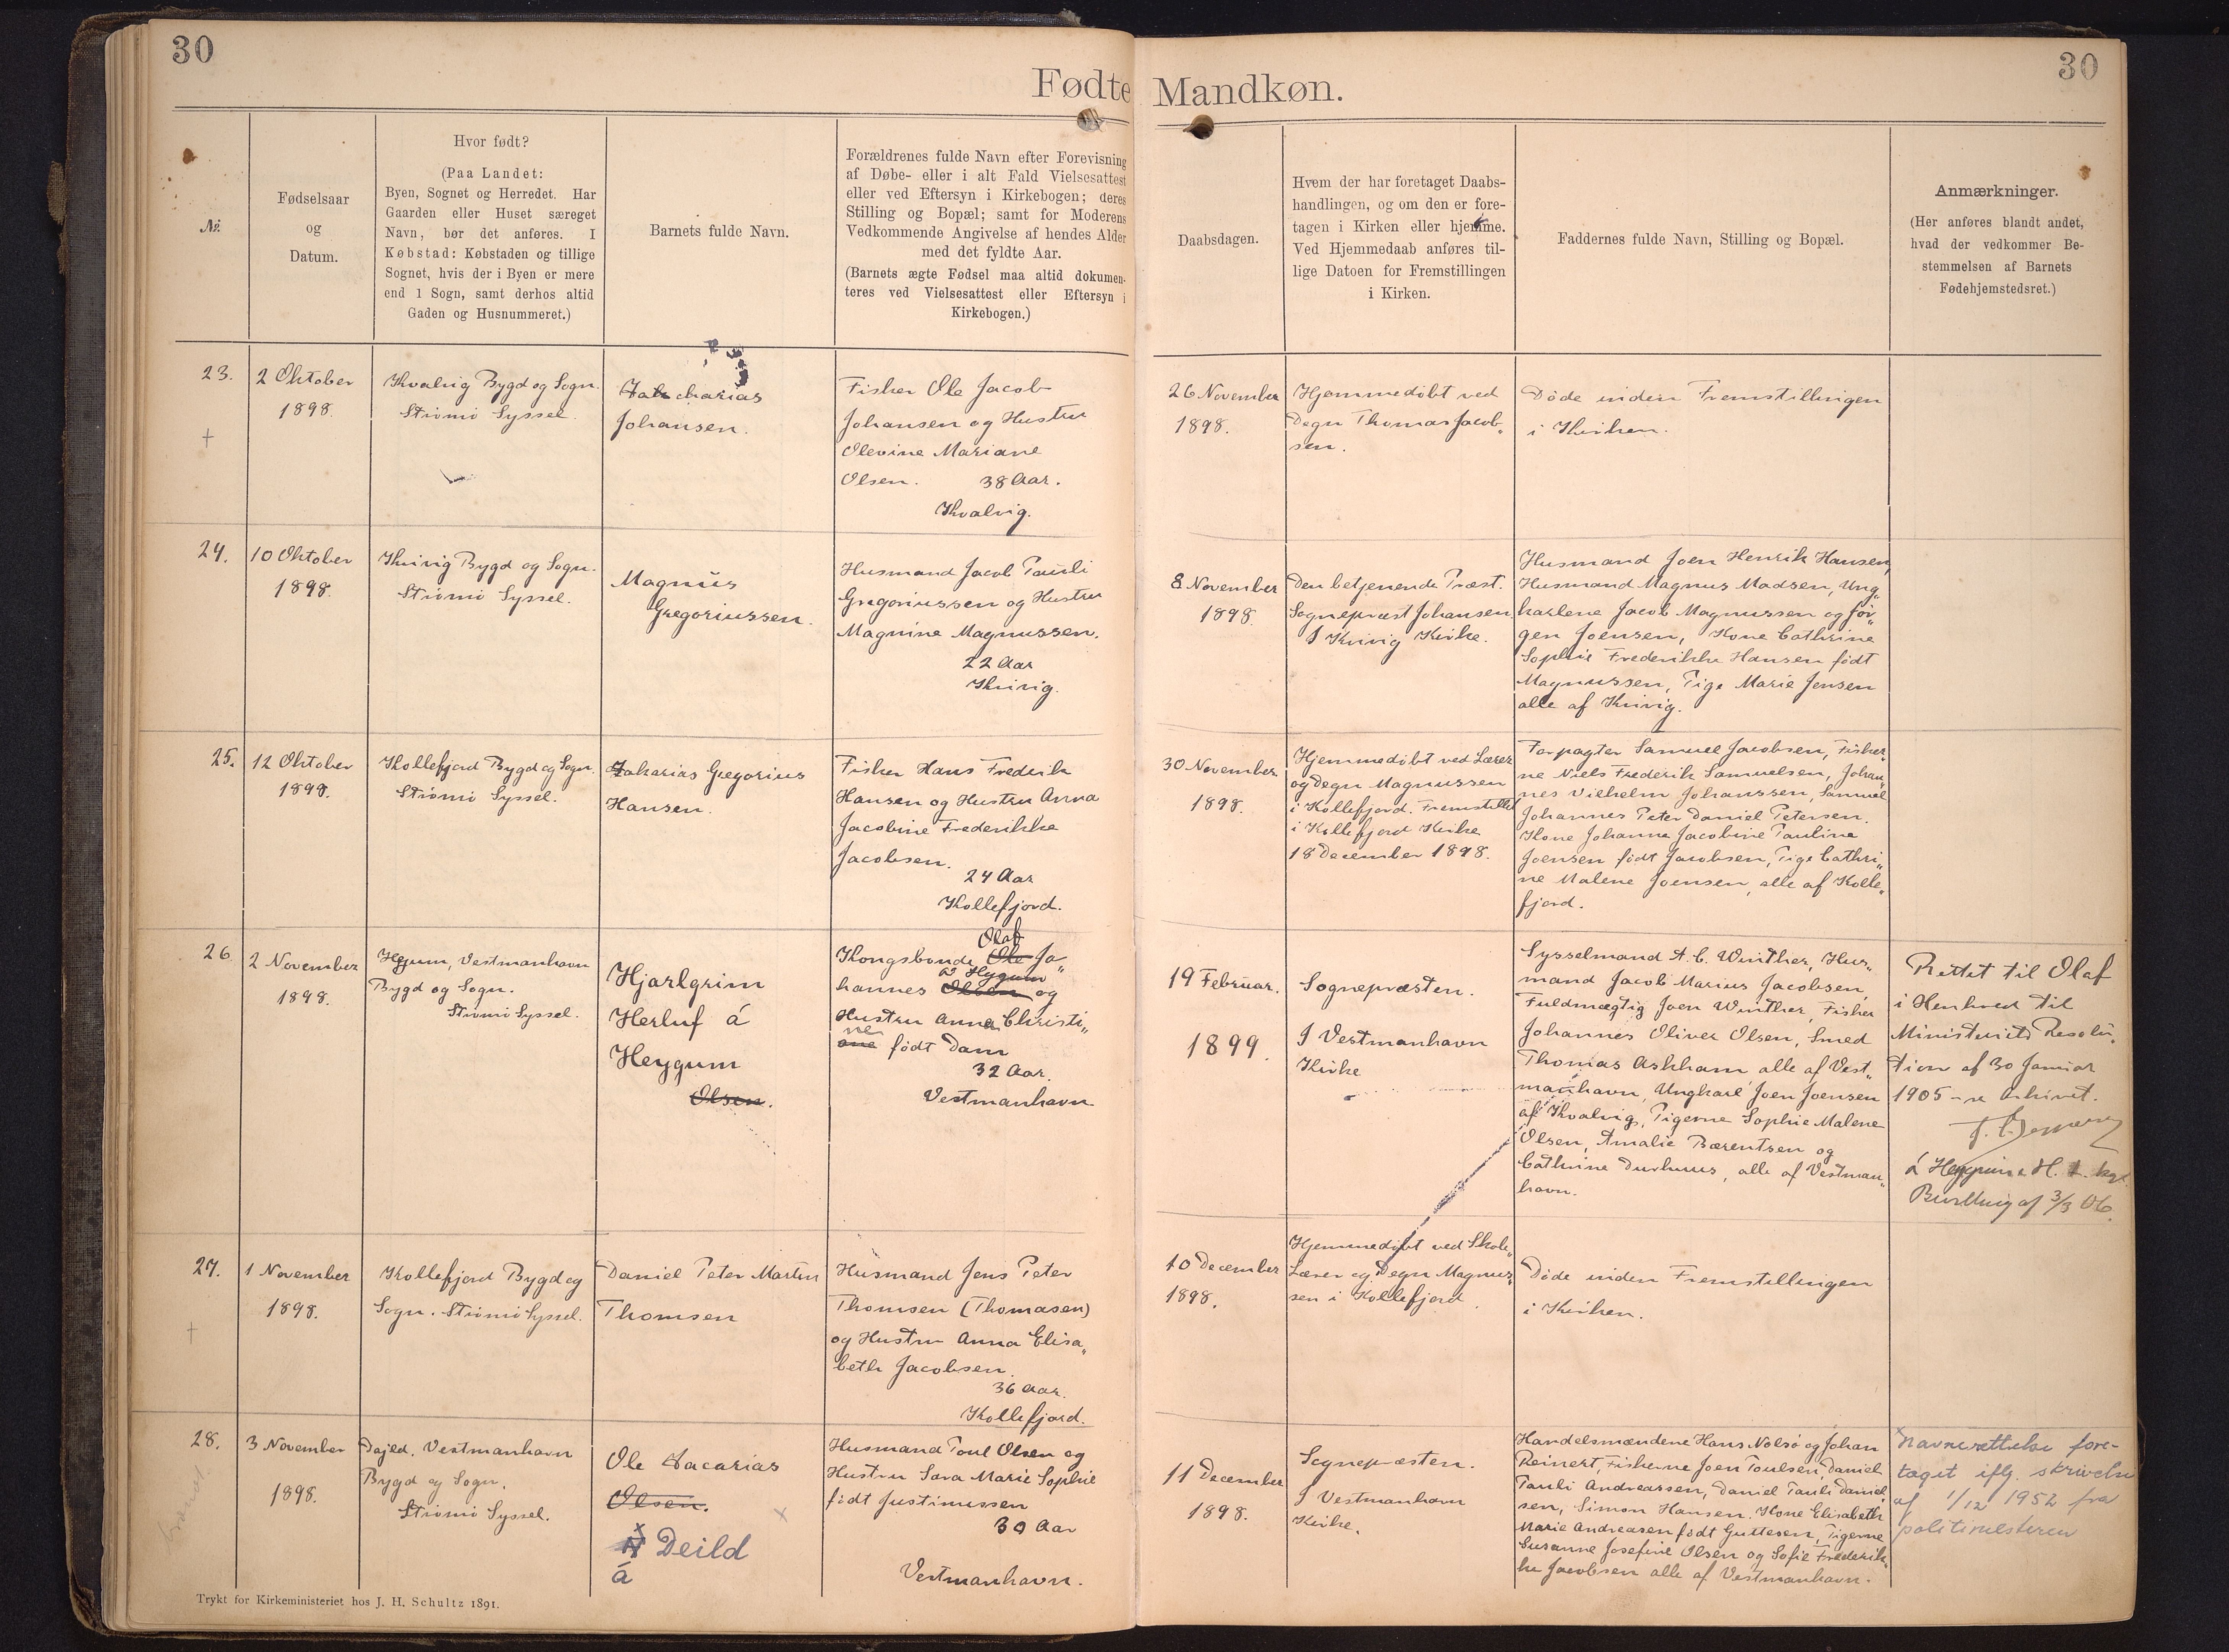 30
Fødte
Mandkøn.
30
№
Fødselsaar
og
Datum.
Hvor født?
(Paa Landet:
Byen, Sognet og Herredet. Har
Gaarden eller Huset særeget
Navn, bør det anføres. I
Købstad: Købstaden og tillige
Sognet, hvis der i Byen er mere
end 1 Sogn, samt derhos altid
Gaden og Husnummeret.)
Barnets fulde Navn.
Forældrenes fulde Navn efter Forevisning
af Døbe- eller i alt Fald Vielsesattest
eller ved Eftersyn i Kirkebogen; deres
Stilling og Bopæl; samt for Moderens
Vedkommende Angivelse af hendes Alder
med det fyldte Aar.
(Barnets ægte Fødsel maa altid dokumen-
teres ved Vielsesattest eller Eftersyn i
Kirkebogen.)
Daabsdagen.
Hvem der har foretaget Daabs-
handlingen, og om den er fore-
tagen i Kirken eller hjemme.
Ved Hjemmedaab anføres til-
lige Datoen for Fremstillingen
i Kirken.
Faddernes fulde Navn, Stilling og Bopæl.
Anmærkninger.
(Her anføres blandt andet,
hvad der vedkommer Be-
stemmelsen af Barnets
Fødehjemstedsret.)
23.
†
2 Oktober
1898.
Kvalvig Bygd og Sogn.
Strömö Syssel.
Zakcharias
Johansen.
Fisker Ole Jacob
Johansen og Hustru
Olevine Mariane
Olsen. 38 Aar.
Kvalvig.
26 November
1898.
Hjemmedöbt ved
Degn Thomas Jacob„
sen.
Döde inden Fremstillingen
i Kirken.
24.
10 Oktober
1898.
Kvivig Bygd og Sogn.
Strömö Syssel.
Magnus
Gregoriussen.
Husmand Jacob Pauli
Gregoriussen og Hustru
Magnine Magnussen.
22 Aar
Kvivig.
8 November
1898.
Den betjenende Præst.
Sognepræst Johansen
I Kvivig Kirke.
Husmand Joen Henrik Hansen,
Husmand Magnus Madsen, Ung„
karlene Jacob Magnussen og Jör„
gen Joensen, Kone Cathrine
Sophie Frederikke Hansen födt
Magnussen, Pige Marie Jensen
alle af Kvivig.
25.
12 Oktober
1898.
Kollefjord Bygd og Sogn.
Strömö Syssel.
Zakarias Gregorius
Hansen.
Fisker Hans Frederik
Hansen og Hustru Anna
Jacobine Frederikke
Jacobsen.
24 Aar
Kollefjord.
30 November
1898.
Hjemmedöbt ved Lærer
og Degn Magnussen
i Kollefjord. Fremstillet
i Kollefjord Kirke
18 December 1898.
Forpagter Samuel Jacobsen, Fisker„
ne Niels Frederik Samuelsen, Johan„
nes Vilhelm Johanssen, Samuel
Johannes Peter Daniel Petersen.
Kone Johanna Jacobine Pauline
Joensen födt Jacobsen, Pige Cathri„
ne Malene Joensen, alle af Kolle„
fjord.
26
2 November
1898.
Heygum, Vestmanhavn
Bygd og Sogn.
Strömö Syssel.
Hjarlgrim
Herluf á
Heygum
Olsen.
Olaf
Kongsbonde Ole Jo„
á Heygum
hannes Olsen og
Hustru Anna Christi„
ne
ane födt Dam
32 Aar.
Vestmanhavn
19 Februar.
1899.
Sognepræsten.
I Vestmanhavn
Kirke
Sysselmand A. C. Winther, Hus„
mand Jacob Marius Jacobsen,
Fuldmægtig Joen Winther, Fisker
Johannes Oliver Olsen, Smed
Thomas Askham alle af Vest„
manhavn, Ungkarl Joen Joensen
af Kvalvig, Pigerne Sophie Malene
Olsen, Amalie Bærentsen og
Cathrine Durhuus, alle af Vestman„
havn.
Rettet til Olaf
i Henhold til
Ministeriets Resolu„
tion af 30 Januar
1905
á Heygum
af 3/3 06.
27.
†
1 November
1898.
Kollefjord Bygd og
Sogn. Strömö Syssel.
Daniel Peter Martin
Thomsen
Husmand Jens Peter
Thomsen (Thomasen)
og Hustru Anna Elisa„
beth Jacobsen.
36 Aar.
Kollefjord.
10 December
1898.
Hjemmedöbt ved Skole„
Lærer og Degn Magnus„
sen i Kollefjord.
Döde inden Fremstillingen
i Kirken.
28.
3 November
1898.
Dajed. Vestmanhavn
Bygd og Sogn.
Strömö Syssel.
Ole Zacarias
Olsen.
x Deild
á
Husmand Poul Olsen og
Hustru Sara Marie Sophie
födt Justinussen
30 Aar
Vestmanhavn.
11 December
1898.
Sognepræsten.
I Vestmanhavn
Kirke.
Handelsmændene Hans Nolsö og Johan
Reinert, Fiskerne Joen Poulsen, Daniel
Pauli Andreassen, Daniel Pauli Daniel„
sen, Simon Hansen. Kone Elisabeth
Marie Andreasen födt Guttesen, Pigerne
Susanne Josefine Olsen og Sofie Frederik„
ke Jacobsen alle af Vestmanhavn.
x Navnerettelse fore-
taget iflg. skrivelse
af 1/12 1952 fra
politimesteren
Trykt for Kirkeministeriet hos J. H. Schultz 1891.